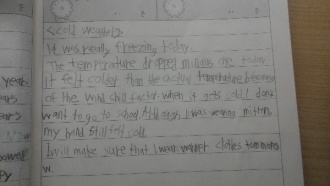 <cold weather>
It was really freezing today.
The temperature dropped minus one today.
it felt colder than the actual temperature because
of the wind chill factor. when it gets cold I dont
want to go to school. Although I was wearing mittens
my hand still felt cold.
I will make sure that I wear warmer clothes tommoro
w.
year
ears
ears
power
py